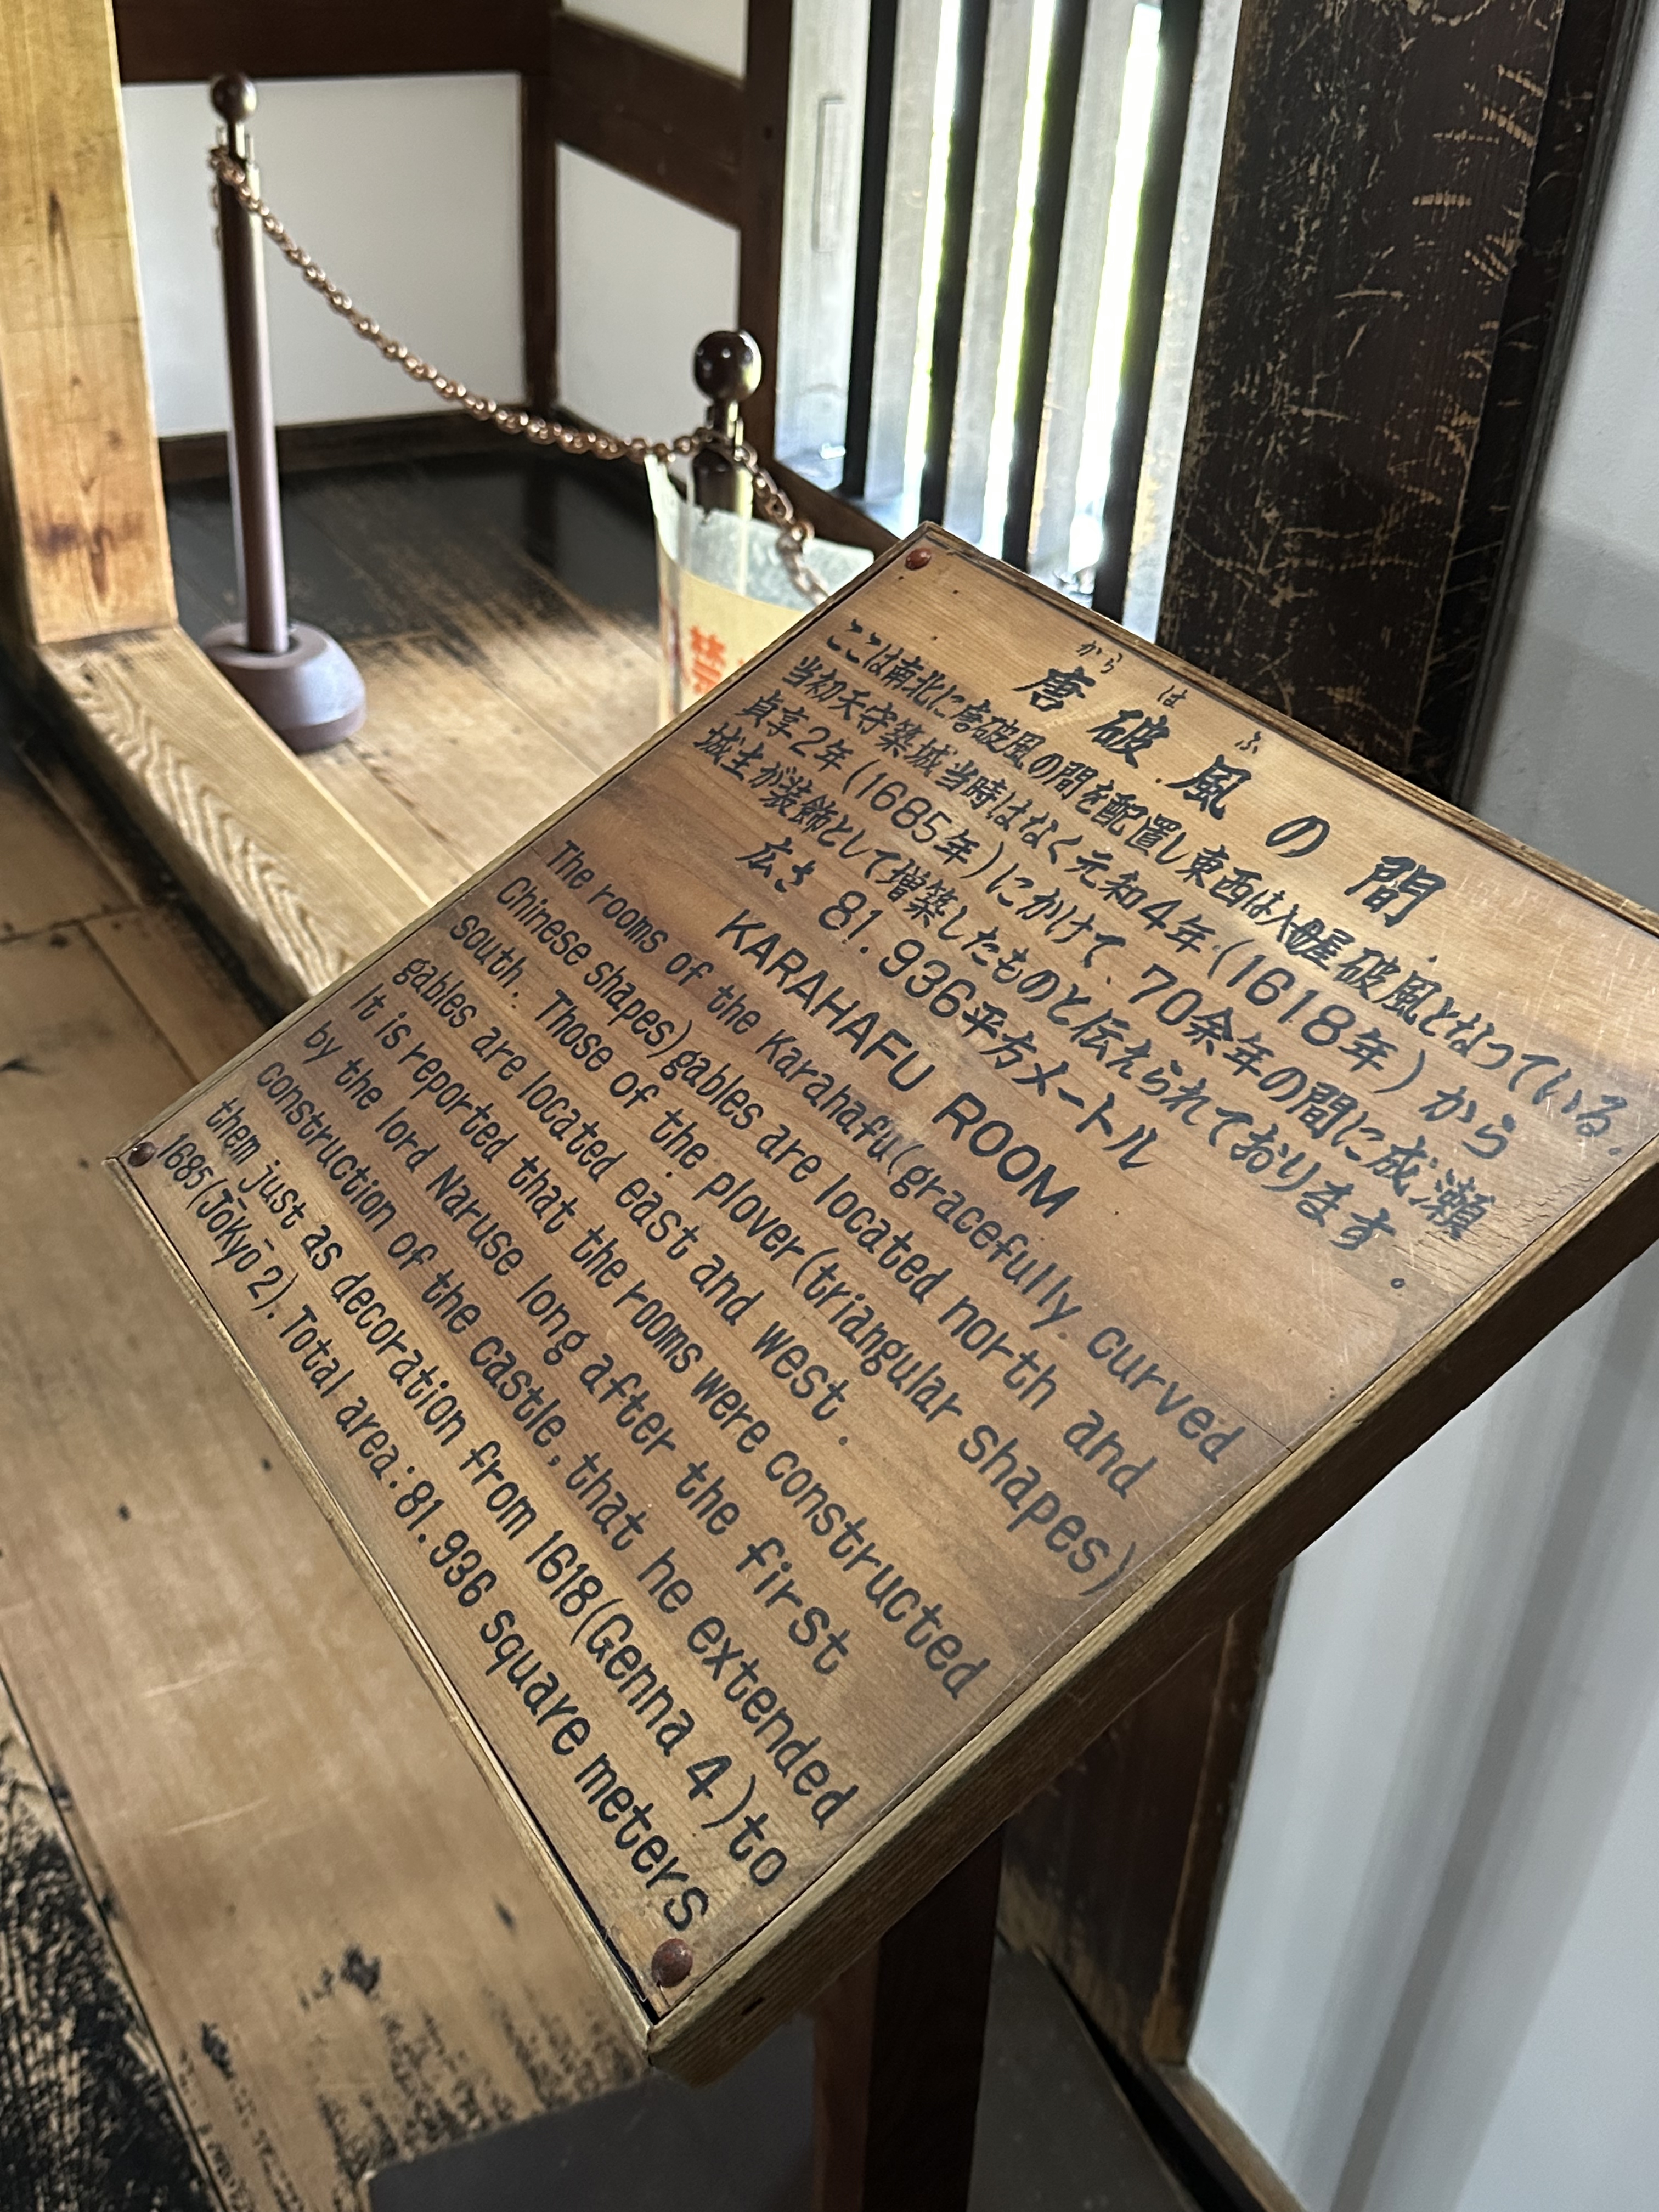 禁
から は ふ
唐破風の間
ここは南北に唐破風の間を配置し東西は入母屋破風となっている。
当初天守築城当時はなく元和4年(1618年)から
貞享2年(1685年)にかけて、70余年の間に成瀬
城主が装飾として増築したものと伝えられております。
広さ 81.936平方メートル
KARAHAFU ROOM
The rooms of the Karahafu(gracefully curved
Chinese shapes)gables are located north and
south. Those of the plover(triangular shapes)
gables are located east and west.
It is reported that the rooms were constructed
by the lord Naruse long after the first
construction of the castle, that he extended
them just as decoration from 1618(Genna 4)to
1685(Jōkyō 2). Total area:81.936 square meters